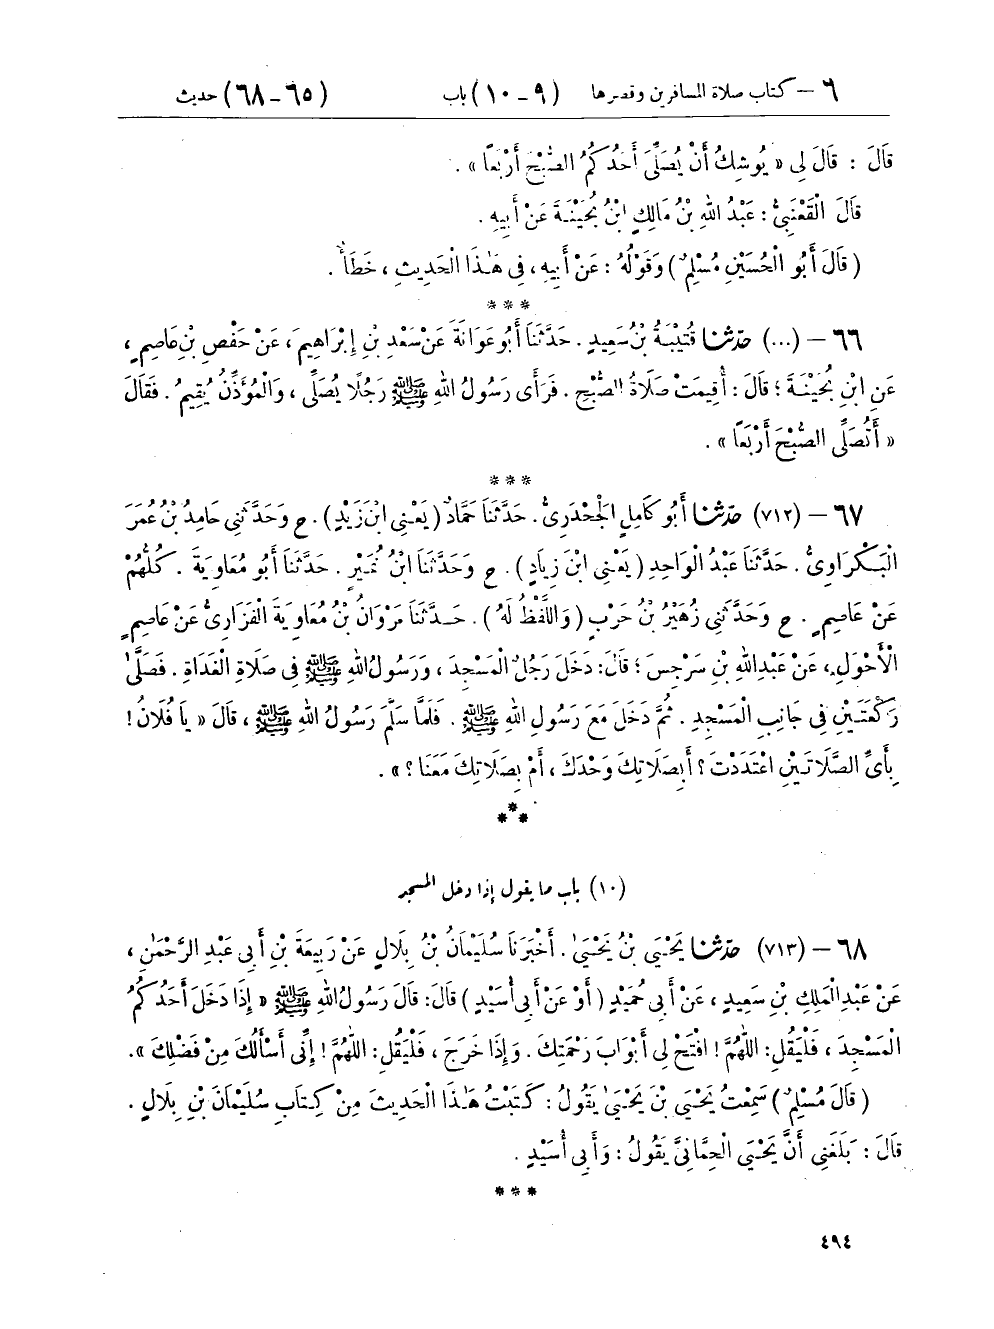 ٦ – كتاب صلاة المسافرين وقصرها (٩ - ١٠) باب (٦٥ - ٦٨) حديث
قَالَ : قَالَ لِي « يُوشِكُ أَنْ يُصَلِّيَ أَحَدُكُمُ الصُّبْحَ أَرْبَعًا » .
قَالَ الْقَعْنَبِيُّ : عَبْدُ اللهِ بْنُ مَالِكٍ ابْنُ بُحَيْنَةَ عَنْ أَبِيهِ .
( قَالَ أَبُو الْحُسَيْنِ مُسْلِمٌ ) وَقَوْلُهُ : عَنْ أَبِيهِ ، فِي هَٰذَا الْحَدِيثِ ، خَطَأٌ .
* * *
٦٦ – (...) حَدَّثَنَا قُتَيْبَةُ بْنُ سَعِيدٍ . حَدَّثَنَا أَبُو عَوَانَةَ عَنْ سَعْدِ بْنِ إِبْرَاهِيمَ ، عَنْ حَفْصِ بْنِ عَاصِمٍ ،
عَنِ ابْنِ بُحَيْنَةَ ؛ قَالَ : أُقِيمَتْ صَلَاةُ الصُّبْحِ . فَرَأَى رَسُولُ اللهِ ﷺ رَجُلًا يُصَلِّي ، وَالْمُؤَذِّنُ يُقِيمُ . فَقَالَ
« أَتُصَلِّي الصُّبْحَ أَرْبَعًا » .
* * *
٦٧ – (٧١٢) حَدَّثَنَا أَبُو كَامِلٍ الْجَحْدَرِيُّ . حَدَّثَنَا حَمَّادٌ ( يَعْنِي ابْنَ زَيْدٍ ) . ح وَحَدَّثَنِي حَامِدُ بْنُ عُمَرَ
الْبَكْرَاوِيُّ . حَدَّثَنَا عَبْدُ الْوَاحِدِ ( يَعْنِي ابْنَ زِيَادٍ ) . ح وَحَدَّثَنَا ابْنُ نُمَيْرٍ . حَدَّثَنَا أَبُو مُعَاوِيَةَ . كُلُّهُمْ
عَنْ عَاصِمٍ . ح وَحَدَّثَنِي زُهَيْرُ بْنُ حَرْبٍ ( وَاللَّفْظُ لَهُ ) . حَدَّثَنَا مَرْوَانُ بْنُ مُعَاوِيَةَ الْفَزَارِيُّ عَنْ عَاصِمٍ
الْأَحْوَلِ ، عَنْ عَبْدِ اللهِ بْنِ سَرْجِسَ ؛ قَالَ : دَخَلَ رَجُلٌ الْمَسْجِدَ ، وَرَسُولُ اللهِ ﷺ فِي صَلَاةِ الْغَدَاةِ . فَصَلَّىٰ
رَكْعَتَيْنِ فِي جَانِبِ الْمَسْجِدِ . ثُمَّ دَخَلَ مَعَ رَسُولِ اللهِ ﷺ . فَلَمَّا سَلَّمَ رَسُولُ اللهِ ﷺ ، قَالَ « يَا فُلَانُ !
بِأَيِّ الصَّلَاتَيْنِ اعْتَدَدْتَ ؟ أَبِصَلَاتِكَ وَحْدَكَ ، أَمْ بِصَلَاتِكَ مَعَنَا ؟ » .
* * *
(١٠) باب ما يقول إذا دخل المسجد
٦٨ – (٧١٣) حَدَّثَنَا يَحْيَى بْنُ يَحْيَىٰ . أَخْبَرَنَا سُلَيْمَانُ بْنُ بِلَالٍ عَنْ رَبِيعَةَ بْنِ أَبِي عَبْدِ الرَّحْمَٰنِ ،
عَنْ عَبْدِ الْمَلِكِ بْنِ سَعِيدٍ ، عَنْ أَبِي حُمَيْدٍ ( أَوْ عَنْ أَبِي أُسَيْدٍ ) قَالَ : قَالَ رَسُولُ اللهِ ﷺ « إِذَا دَخَلَ أَحَدُكُمُ
الْمَسْجِدَ ، فَلْيَقُلِ : اللَّهُمَّ ! افْتَحْ لِي أَبْوَابَ رَحْمَتِكَ . وَإِذَا خَرَجَ ، فَلْيَقُلِ : اللَّهُمَّ ! إِنِّي أَسْأَلُكَ مِنْ فَضْلِكَ » .
( قَالَ مُسْلِمٌ ) سَمِعْتُ يَحْيَى بْنَ يَحْيَىٰ يَقُولُ : كَتَبْتُ هَٰذَا الْحَدِيثَ مِنْ كِتَابِ سُلَيْمَانَ بْنِ بِلَالٍ .
قَالَ : بَلَغَنِي أَنَّ يَحْيَى الْحِمَّانِيَّ يَقُولُ : وَأَبِي أُسَيْدٍ .
* * *
٤٩٤